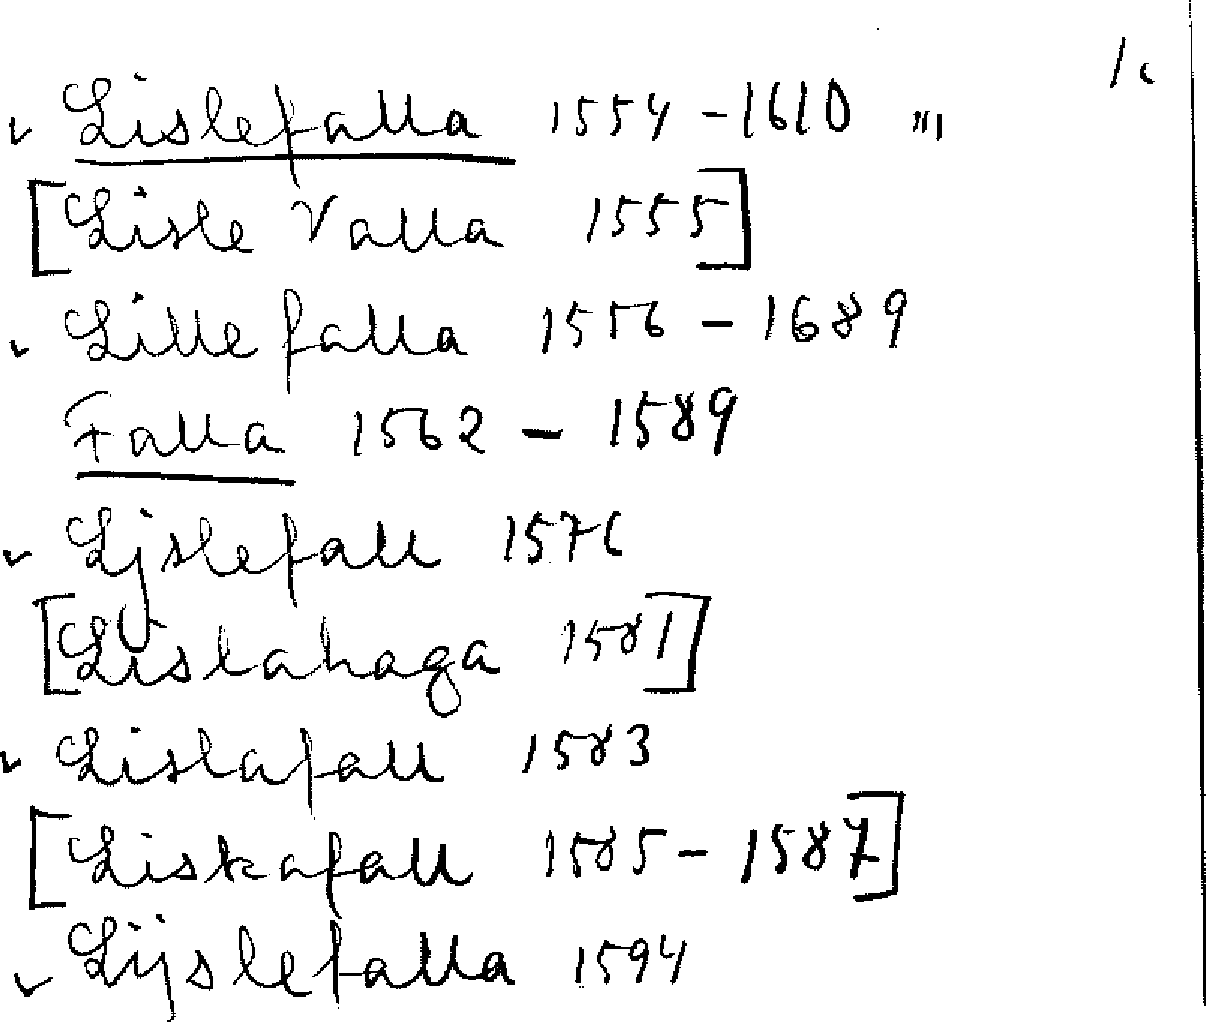 Lislefalla 1554-1610 "1
[Lisle Valla 1555]
Lille falla 1556 - 1689
Falla 1562 - 1589
Ljslefall 1576
[Lislahaga 1581]
Lislafall 1583
[Liskafall 1585-1587]
Lijslefalla 1594